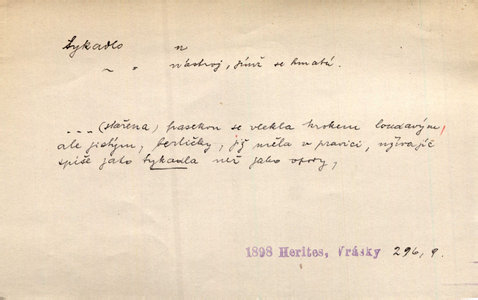 tykadlo n
~ „ nástroj, jímž se hmatá.
... (stařena) pasekou se vlekla krokem loudavým,
ale jistým, berličky, již měla v pravici, užívajíc
spíše jako tykadla než jako opory,
1898 Herites, Vrásky 296, 9.